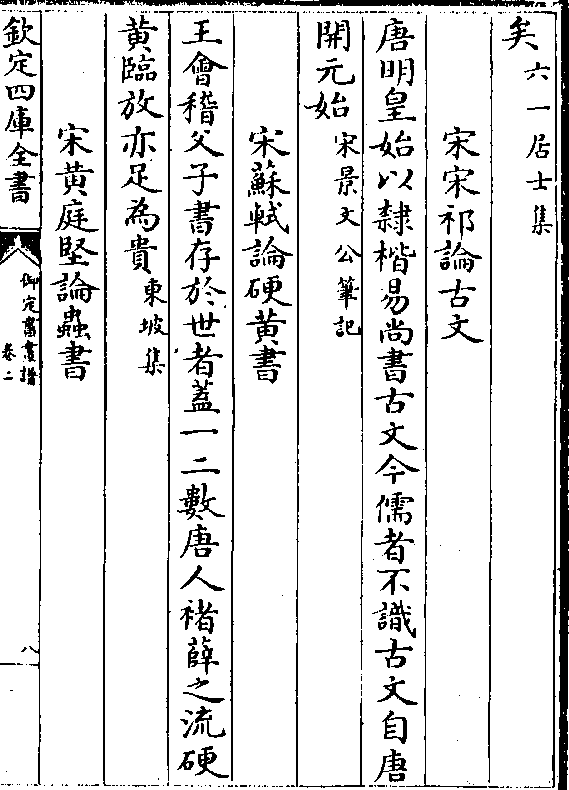 矣六一居士集
宋宋祁論古文
唐明皇始以隸楷易尚書古文今儒者不識古文自唐
開元始宋景文公筆記
宋蘇軾論硬黄書
王會稽父子書存於世者蓋一二數唐人褚薛之流硬
黄臨放亦足為貴東坡集
宋黄庭堅論蟲書
欽定四庫全書
御定書畫譜
卷二
八